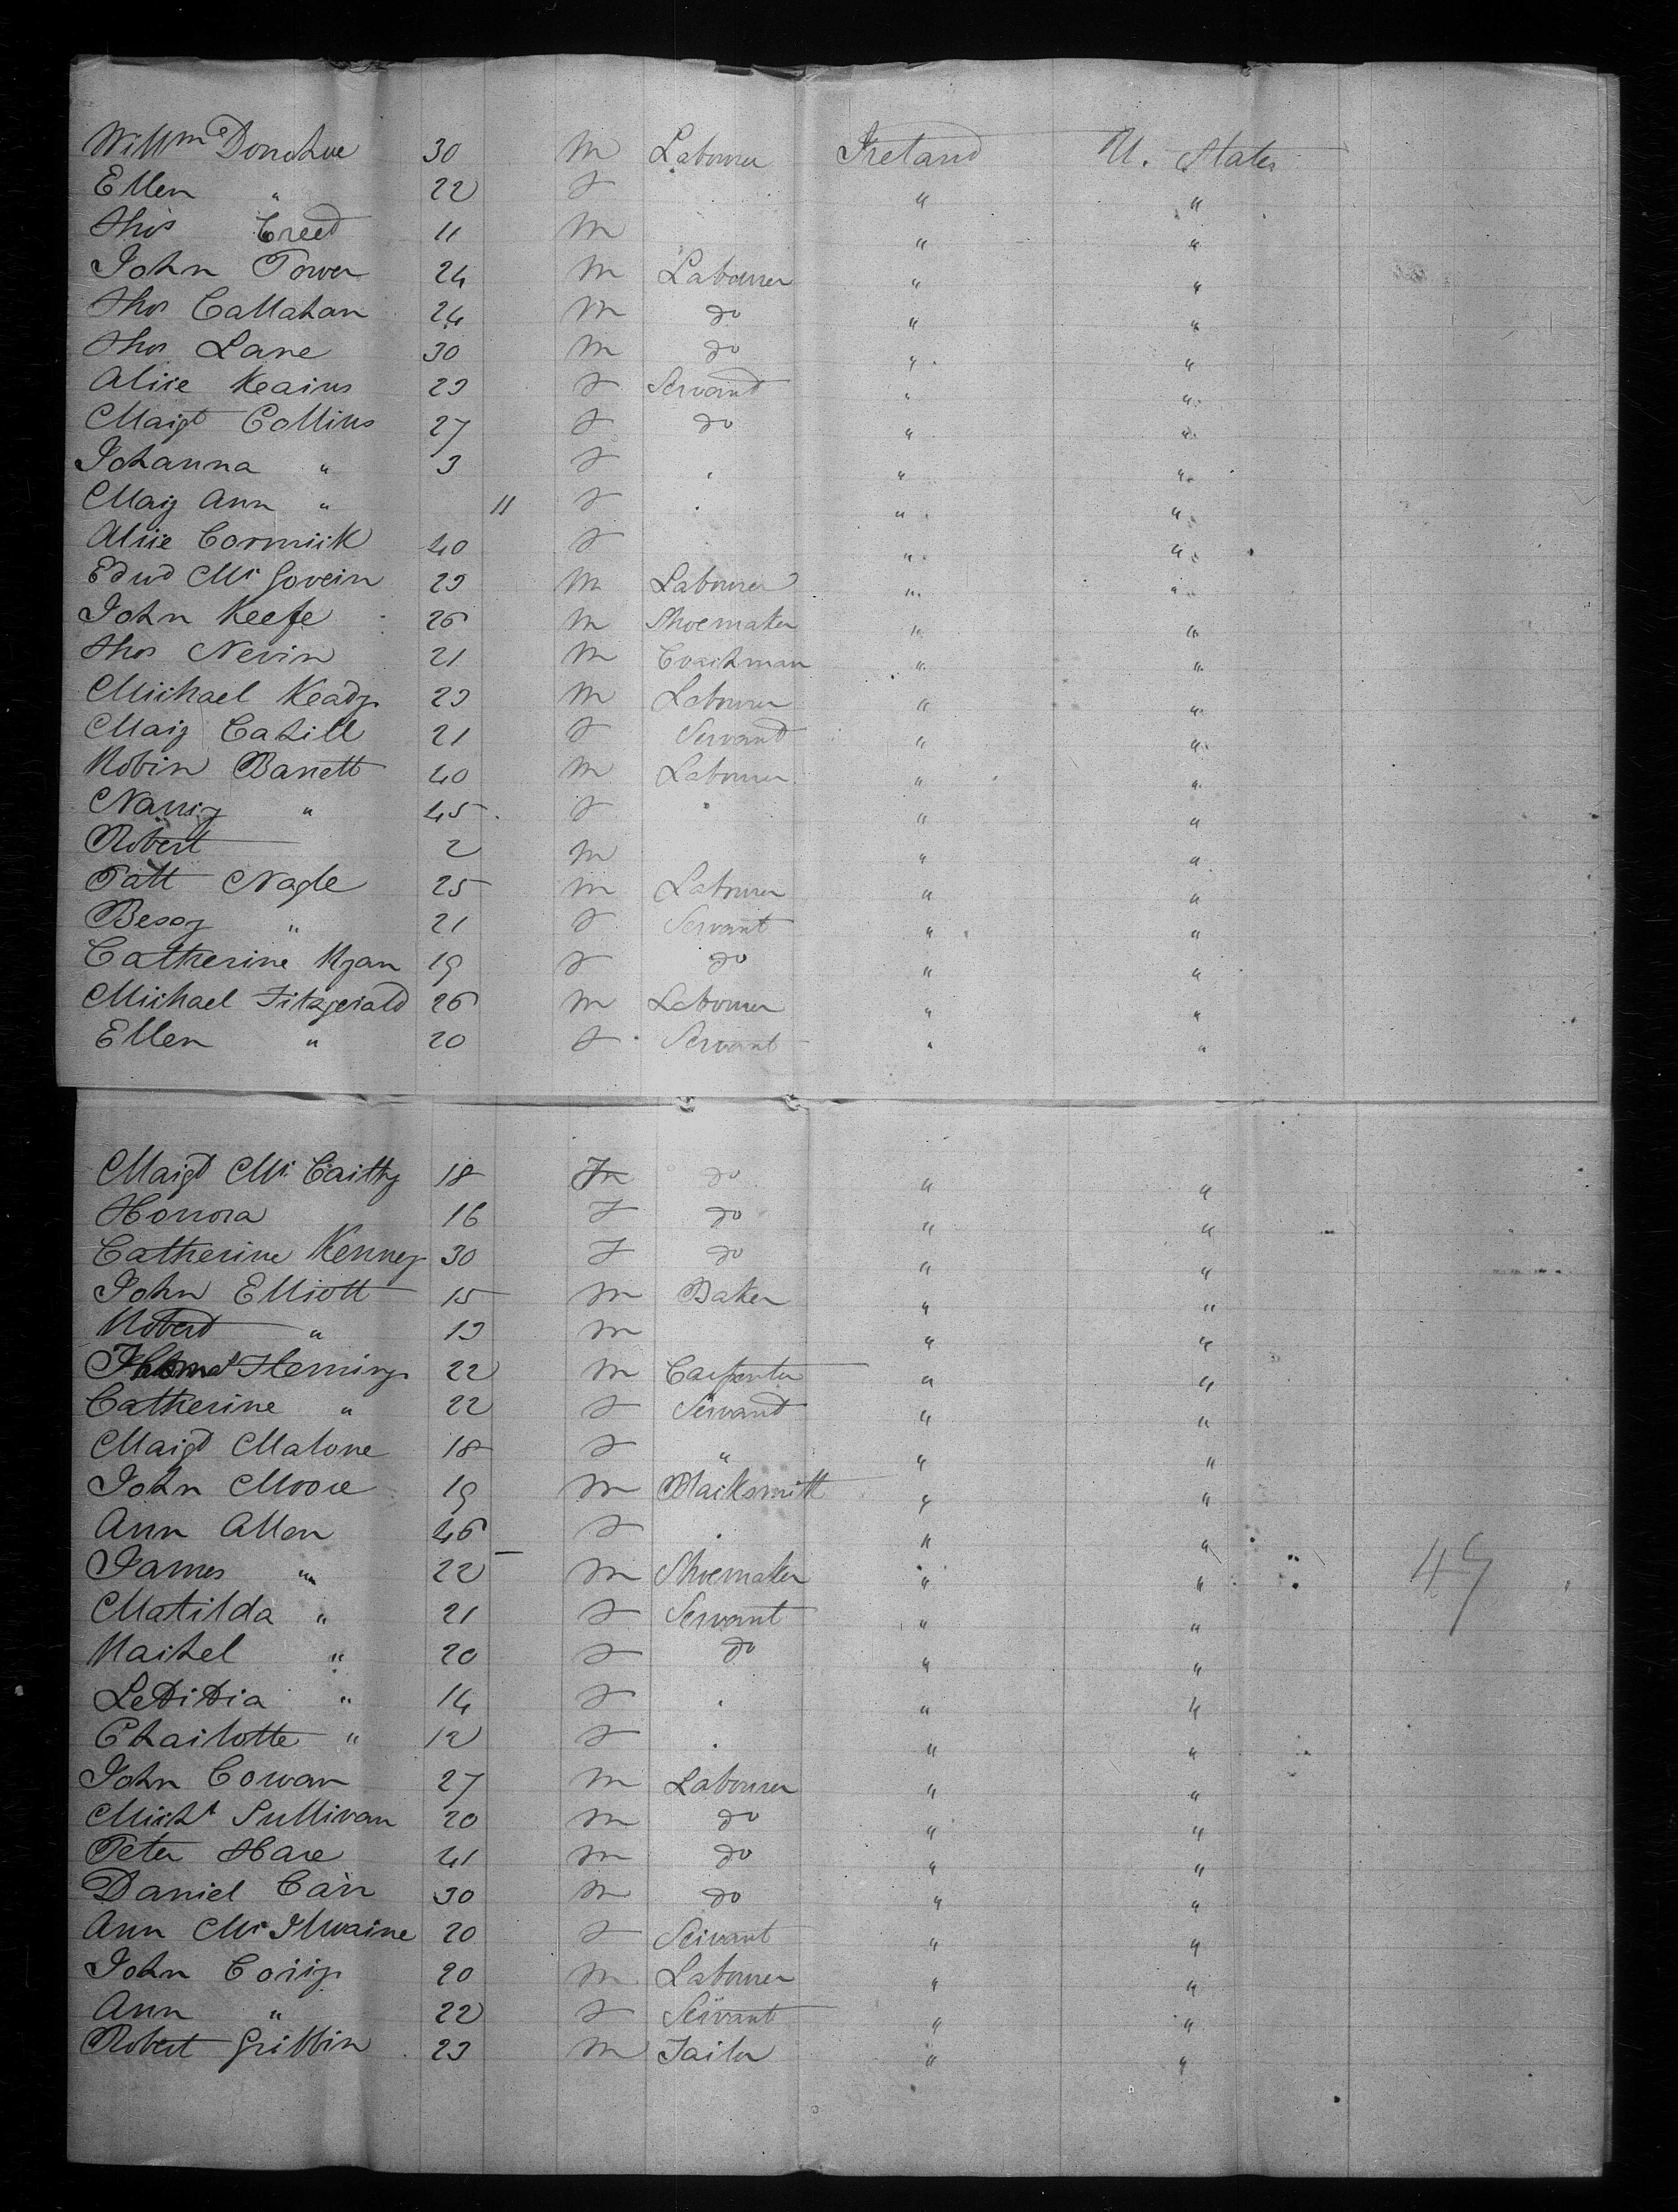 Willm Donohue 30 M Labourer Ireland U. States
Ellen " 22 F " "
Thos Creed 11 M " "
John Power 24 M Labourer " "
Thos Callahan 24 M do " "
Thos Lane 30 M do " "
Alice Kearns 23 F Servant " "
Margt Collins 27 F do " "
Johanna " 3 F " "
Mary Ann " 11 F " "
Alice Cormick 40 F " "
Edwd Mc Govern 23 M Labourer " "
John Keefe 26 M Shoemaker " "
Thos Nevin 21 M Coachman " "
Michael Keady 23 M Labourer " "
Mary Cahill 21 F Servant " "
Robin Barrett 40 M Labourer " "
Nancy " 45 F " "
Robert 2 M " "
Patt Nagle 25 M Labourer " "
Bessy " 21 F Servant " "
Catherine Ryan 19 F do " "
Michael Fitzgerald 26 M Labourer " "
Ellen " 20 F Servant " "
Margt Mc Carthy 18 F do " "
Honora 16 F do " "
Catherine Kenney 30 F do " "
John Elliott 15 M Baker " "
Robert " 13 M " "
Fleming 22 M Carpenter " "
Catherine " 22 F Servant " "
Margt Malone 18 F " " "
John Moore 19 M Blacksmith " "
Ann Allen 46 F " "
James " 22 M Shoemaker " " 47
Matilda " 21 F Servant " "
Rachel " 20 F do " "
Letitia " 14 F " "
Charlotte " 12 F " "
John Cowan 27 M Labourer " "
Michl Sullivan 20 M do " "
Peter Hare 41 M do " "
Daniel Carr 30 M do " "
Ann Mc Ilwaine 20 F Servant " "
John Corry 20 M Labourer " "
Ann " 22 F Servant " "
Robert Gribbin 23 M Tailor " "